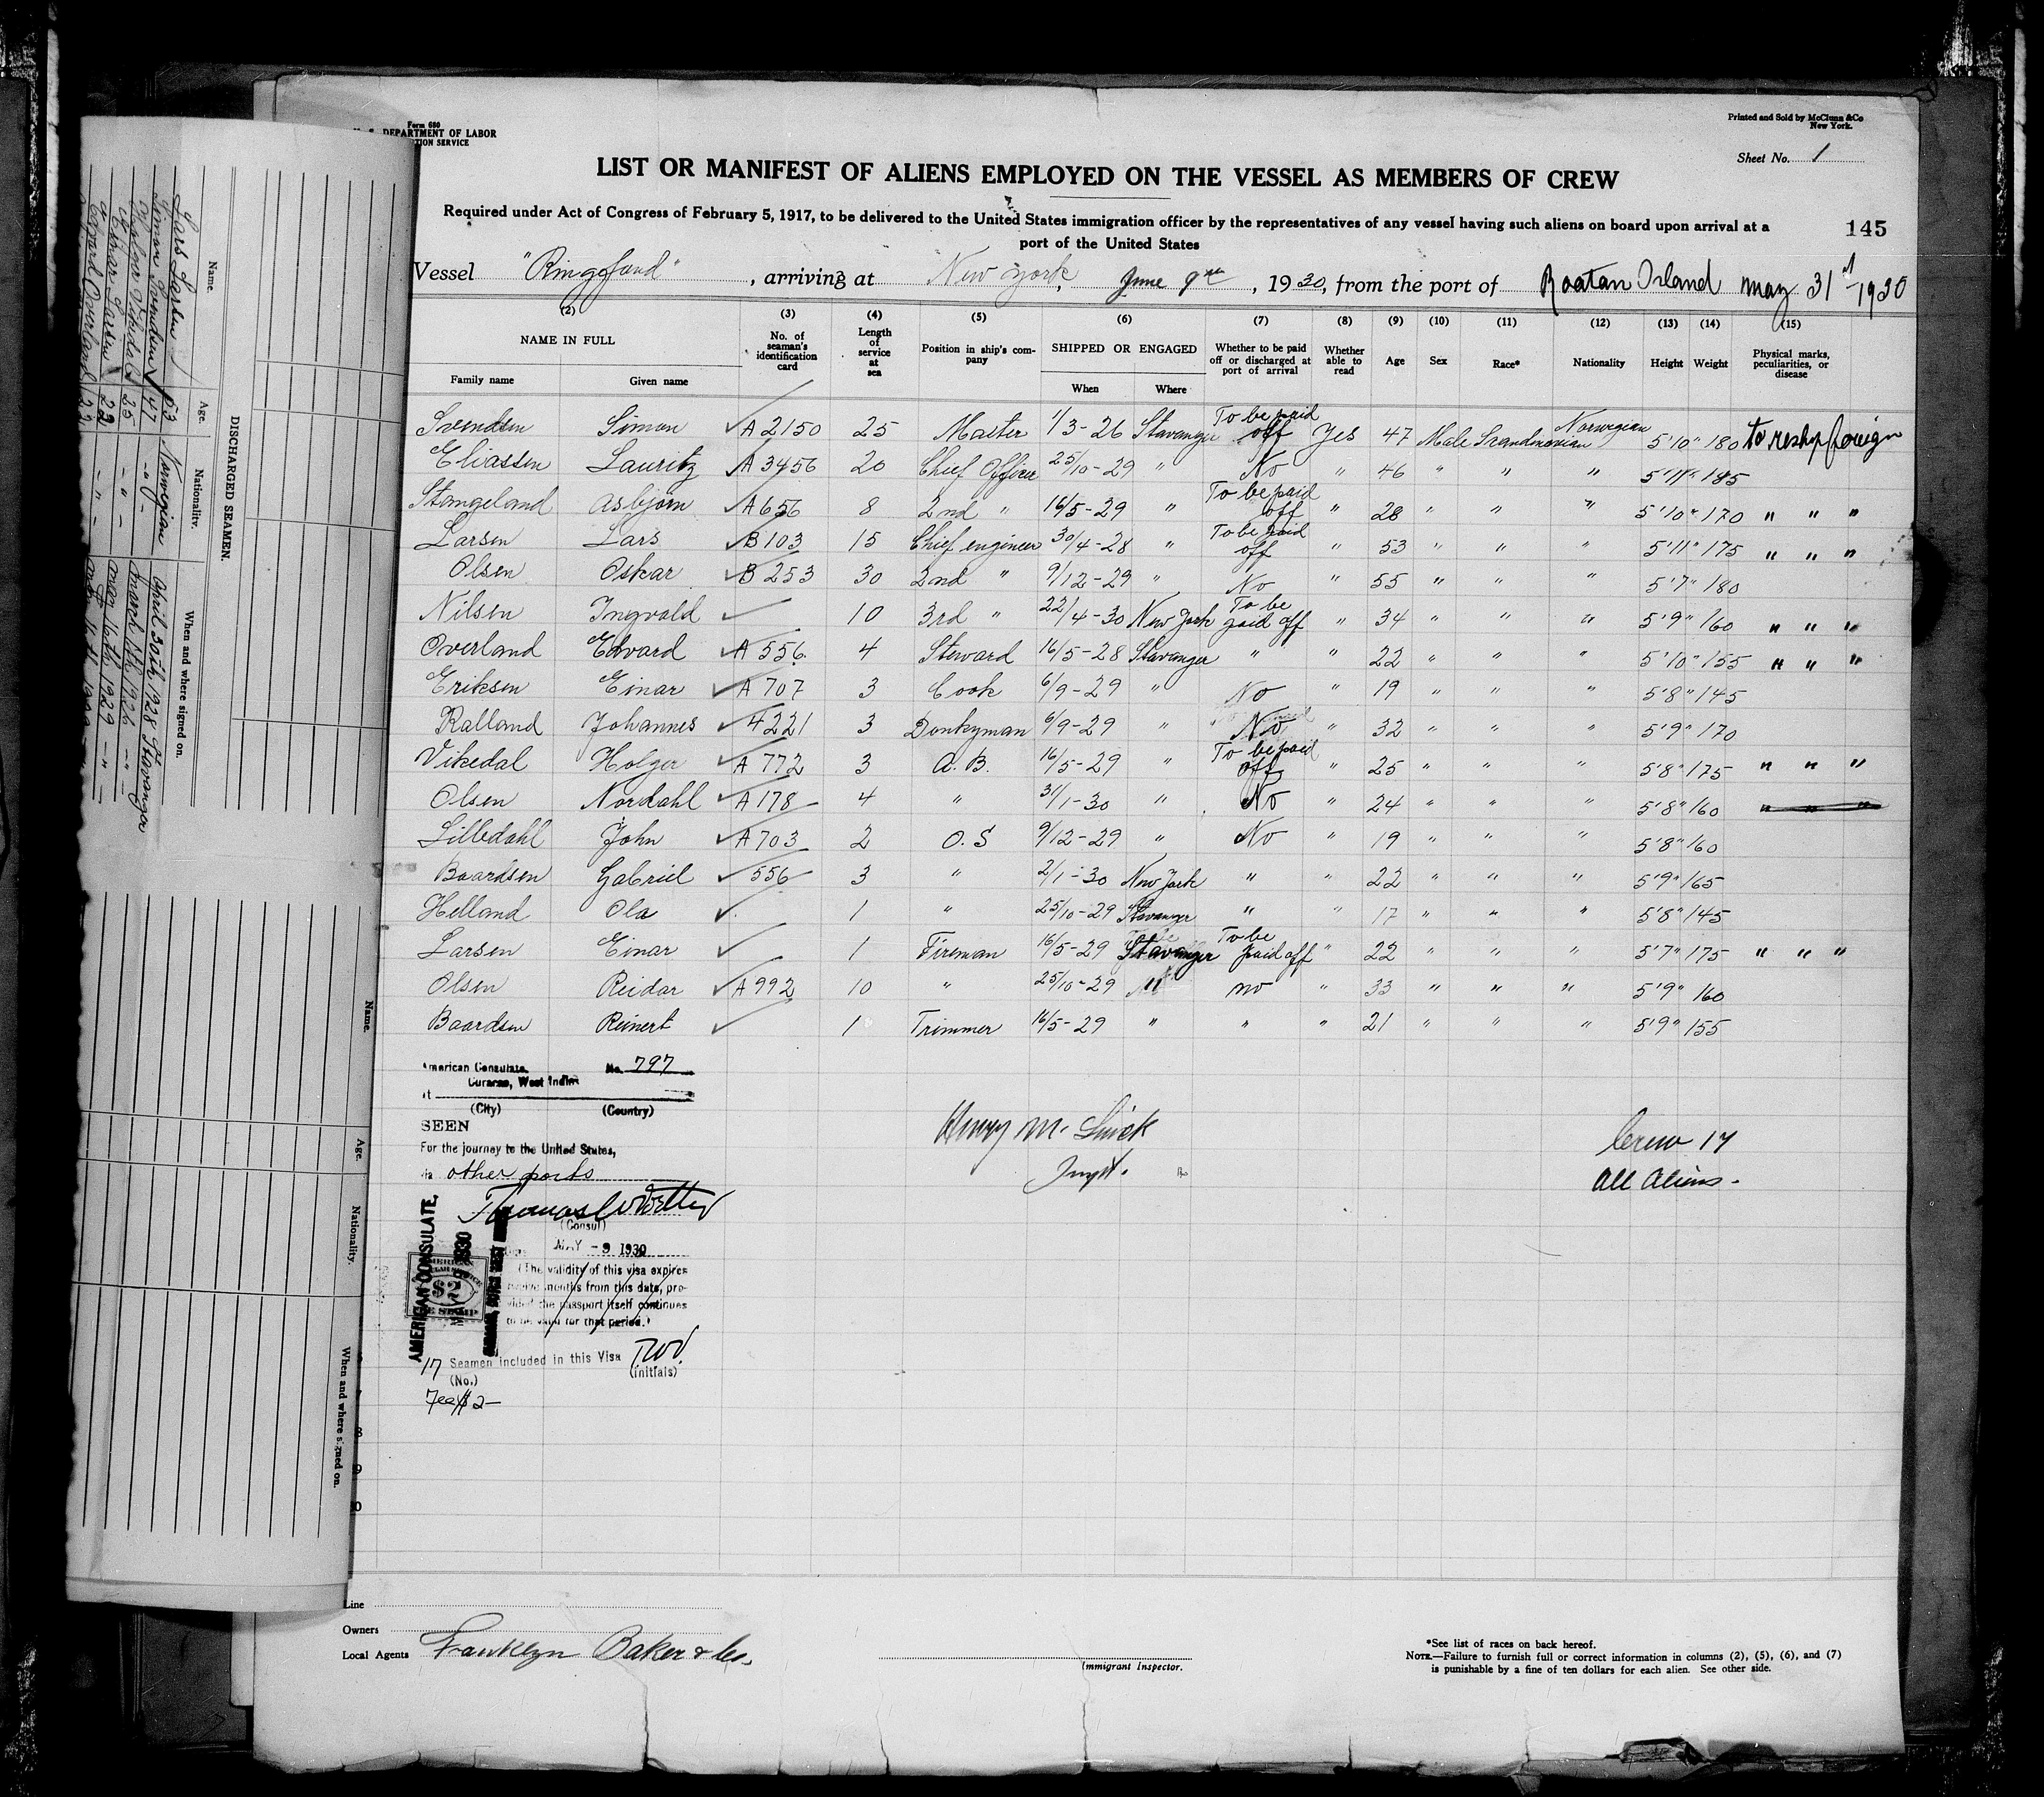 Form 680
DEPARTMENT OF LABOR
Printed and Sold by McClunn & Co
New York.
Sheet No. 1
LIST OR MANIFEST OF ALIENS EMPLOYED ON THE VESSEL AS MEMBERS OF CREW
Required under Act of Congress of February 5, 1917, to be delivered to the United States immigration officer by the representatives of any vessel having such aliens on board upon arrival at a
port of the United States
145
Vessel "Ringgfond", arriving at New York, June 9th, 1930, from the port of Roatan Island may 31st 1930
(2) (3) (4) (5) (6) (7) (8) (9) (10) (11) (12) (13) (14) (15)
NAME IN FULL No. of seaman's identification card Length of service at sea Position in ship's company SHIPPED OR ENGAGED Whether to be paid off or discharged at port of arrival Whether able to read Age Sex Race* Nationality Height Weight Physical marks, peculiarities, or disease
Family name Given name When Where
Svendsen Simon A 2150 25 Master 1/3-26 Stavanger To be paid off Yes 47 Male Scandinavian Norwegian 5'10" 180 to reship foreign
Eliassen Lauritz A 3456 20 Chief Officer 25/10-29 " No " 46 " " " 5'11" 185
Stangeland Asbjorn A 656 8 2nd " 16/5-29 " To be paid off " 28 " " " 5'10" 170 " " "
Larsen Lars B 103 15 Chief engineer 30/4-28 " To be paid off " 53 " " " 5'11" 175 " " "
Olsen Oskar B 253 30 2nd " 9/12-29 " No " 55 " " " 5'7" 180
Nilsen Ingvald 10 3rd " 22/4-30 New York To be paid off " 34 " " " 5'9" 160 " " "
Overland Edvard A 556 4 Steward 16/5-28 Stavanger " " 22 " " " 5'10" 155 " " "
Eriksen Einar A 707 3 Cook 6/9-29 " No " 19 " " " 5'8" 145
Ralland Johannes 4221 3 Donkyman 6/9-29 " No " 32 " " " 5'9" 170
Vikedal Holger A 772 3 A.B. 16/5-29 " To be paid off " 25 " " " 5'8" 175 " " "
Olsen Nordahl A 178 4 " 31/1-30 " No " 24 " " " 5'8" 160 " " "
Lilledahl John A 703 2 O.S 9/12-29 " No 19 " " " 5'8" 160
Baardsen Gabriel 556 3 " 2/1-30 New York " " 22 " " " 5'9" 165
Helland Ola 1 " 25/10-29 Stavanger " " 17 " " " 5'8" 145
Larsen Einar 1 Fireman 16/5-29 Stavanger To be paid off " 22 " " " 5'7" 175 " " "
Olsen Reidar A 992 10 " 25/10-29 " no " 33 " " " 5'9" 160
Baardsen Reinert 1 Trimmer 16/5-29 " " " 21 " " " 5'9" 155
American Consulate, No. 797
Curacao, West Indies
(City) (Country)
SEEN
For the journey to the United States,
other ports
(Consul)
MAY - 9 1930
(The validity of this visa expires
months from this date, pro-
vided the passport itself continues
to be valid for that period.)
17 Seamen included in this Visa
(No.) (initials)
Fee $2-
AMERICAN CONSULATE.
$2
Henry M.
Crew 17
All Aliens.
Line
Owners
Local Agents Franklyn Baker & Co.
Immigrant Inspector.
*See list of races on back hereof.
NOTE.—Failure to furnish full or correct information in columns (2), (5), (6), and (7)
is punishable by a fine of ten dollars for each alien. See other side.
DISCHARGED SEAMEN.
Name. Age. Nationality. When and where signed on.
Lars Larsen 53 Norwegian April 30th 1928 Stavanger
Simon Svendsen 47 - " - March 1st 1926 - " -
Holger Vikedal 25 - " - May 16th 1929 - " -
Einar Larsen 22 - " -
Edvard Overland 22 - " -
Name. Age. Nationality. When and where signed on.
8
9
10